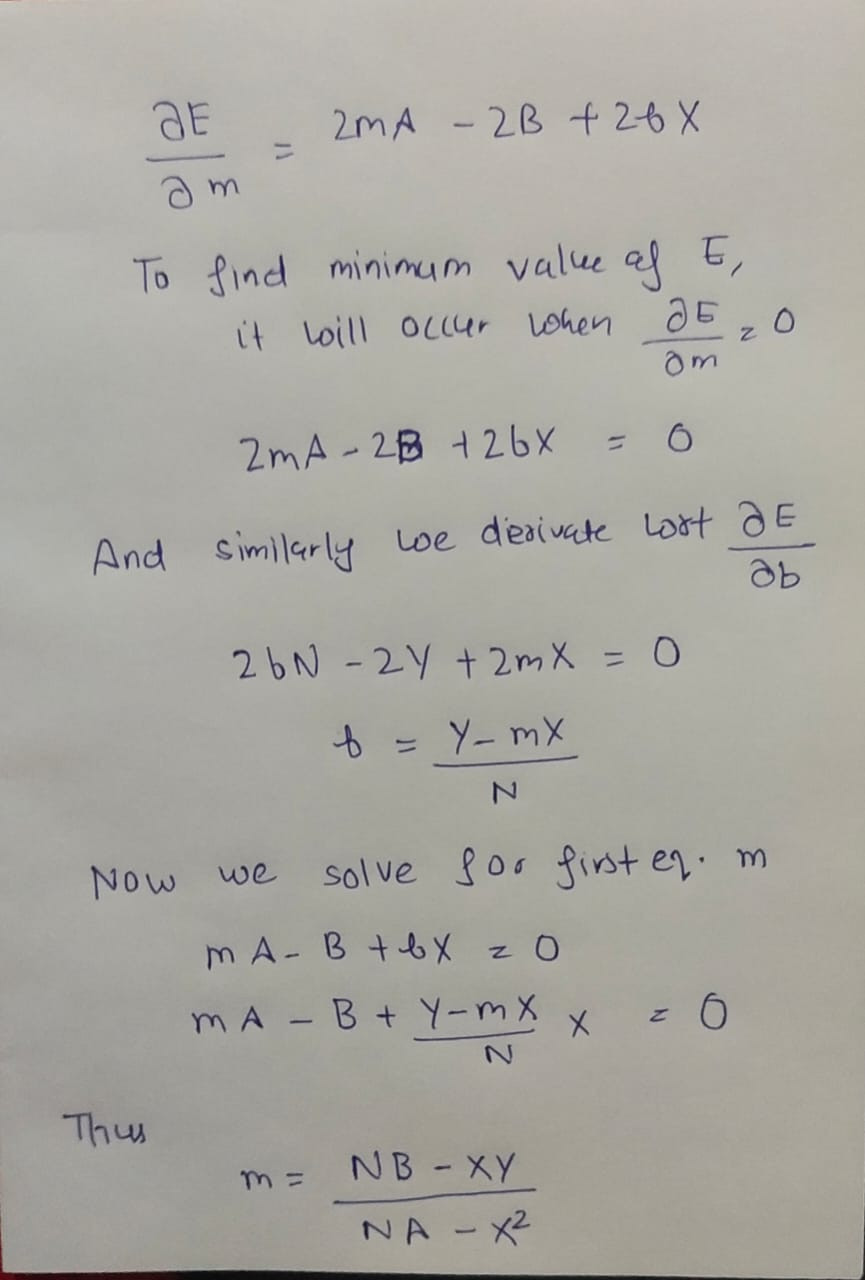 ∂E/∂m = 2mA - 2B + 2bX
To find minimum value of E,
it will occur when ∂E/∂m = 0
2mA - 2B + 2bX = 0
And similarly we derivate wrt ∂E/∂b
2bN - 2Y + 2mX = 0
b = (Y - mX)/N
Now we solve for first eq. m
mA - B + bX = 0
mA - B + (Y - mX)/N X = 0
Thus
m = (NB - XY)/(NA - X²)